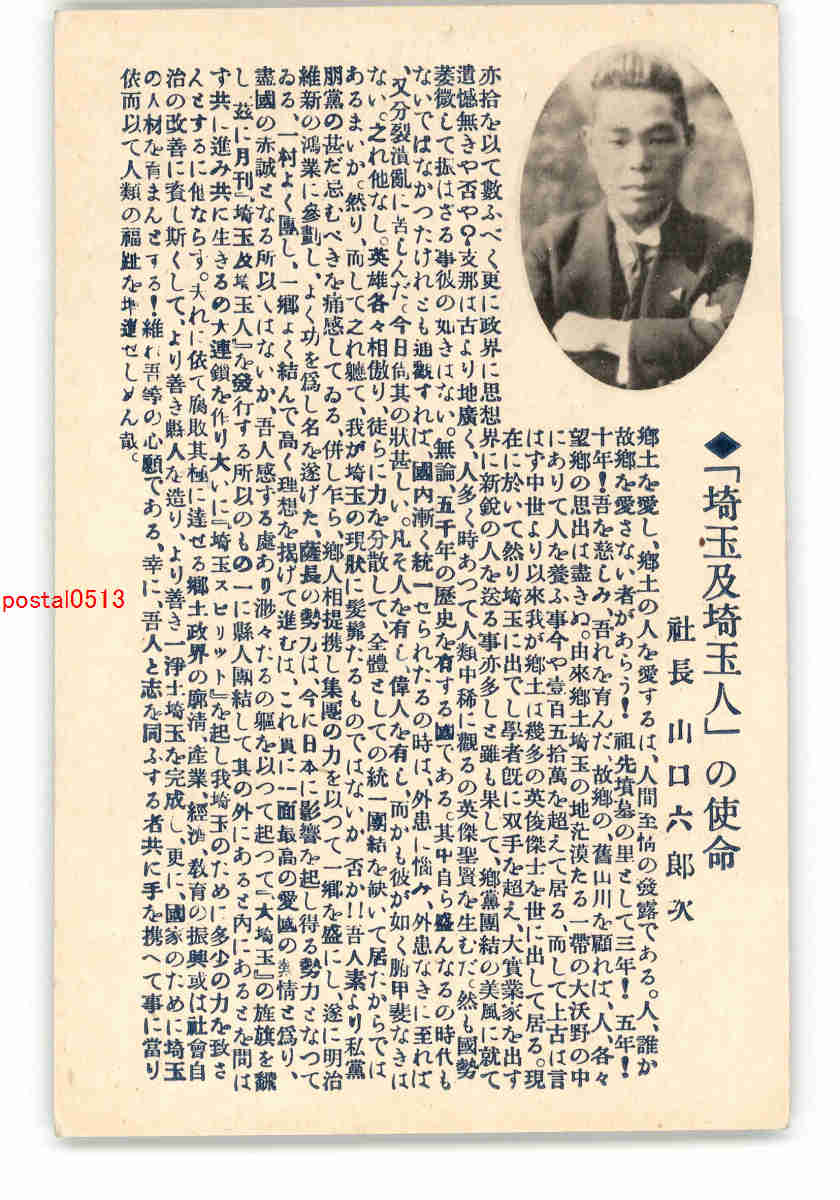 ◆「埼玉及埼玉人」の使命
社長 山口六郎次
鄕土を愛し、鄕土の人を愛するは、人間至情の發露である。人、誰か
故鄕を愛さない者があらう! 祖先墳墓の里として三年! 五年!
十年!吾を慈しみ、吾れを育んだ、故鄕の、舊山川を顧れば、人、各々
望鄕の思出は盡きぬ。由來鄕土埼玉の地茫漠たる一帶の大沃野の中
にありて人を養ふ事今や壹百五拾萬を超えて居る、而して上古は言
はず中世より以來我が鄕土は幾多の英俊傑士を世に出して居る。現
在に於いて然り埼玉に出でし學者旣に双手を超え、大實業家を出す
亦拾を以て數ふべく更に政界に思想界に新銳の人を送る事亦多しと雖も果して、鄕黨團結の美風に就て
遺憾無きや否や?支那は古より地廣く、人多く時あつて人類中稀に觀るの英傑聖賢を生むだ。然も國勢
萎微して振はざる事彼の如きはない。無論、五千年の歷史を有する國である。其中自ら盛んなるの時代も
ないではなかつたけれども通觀すれば、國內漸く統一せられたるの時は、外患に惱み、外患なきに至れば
、又分裂潰亂に苦しんだ。今日尙其の狀甚しい。凡そ人を有し、偉人を有し、而かも彼が如く腑甲斐なきは
ない。之れ他なし。英雄各々相傲り、徒らに力を分散して、全體としての統一團結を缺いて居たからでは
あるまいか。然り、而して之れ軈て、我が埼玉の現狀に髮髴たるものではないか 否か!!吾人素より私黨
朋黨の甚だ忌むべきを痛感してゐる、併し乍ら、鄕人相提携し集團の力を以つて一鄕を盛にし、遂に明治
維新の鴻業に參劃し、よく功を爲し名を遂げた、薩長の勢力は、今に日本に影響を起し得る勢力となつて
ゐる、一村よく團し、一鄕よく結んで高く理想を揭げて進むは、これ眞に一面最高の愛國の熱情と爲り、
盡國の赤誠となる所以ではないか、吾人感ずる處あり渺々たるの軀を以つて起つて『大埼玉』の旌旗を飜
し 茲に月刊『埼玉及埼玉人』を發行する所以のもの一に縣人團結して其の外にあると內にあるとを問は
ず共に進み共に生きるの大連鎖を作り大いに『埼玉スピリット』を起し我埼玉のために多少の力を致さ
んとするに他ならず。夫れに依て腐敗其極に達せる鄕土政界の廓淸、產業、經濟、敎育の振興或は社會自
治の改善に資し斯くして、より善き縣人を造り、より善き一淨土埼玉を完成し、更に、國家のために埼玉
の人材を育まんとする!維れ吾等の心願である、幸に、吾人と志を同ふする者共に手を携へて事に當り
依而以て人類の福祉を增進せしめん哉。
postal0513